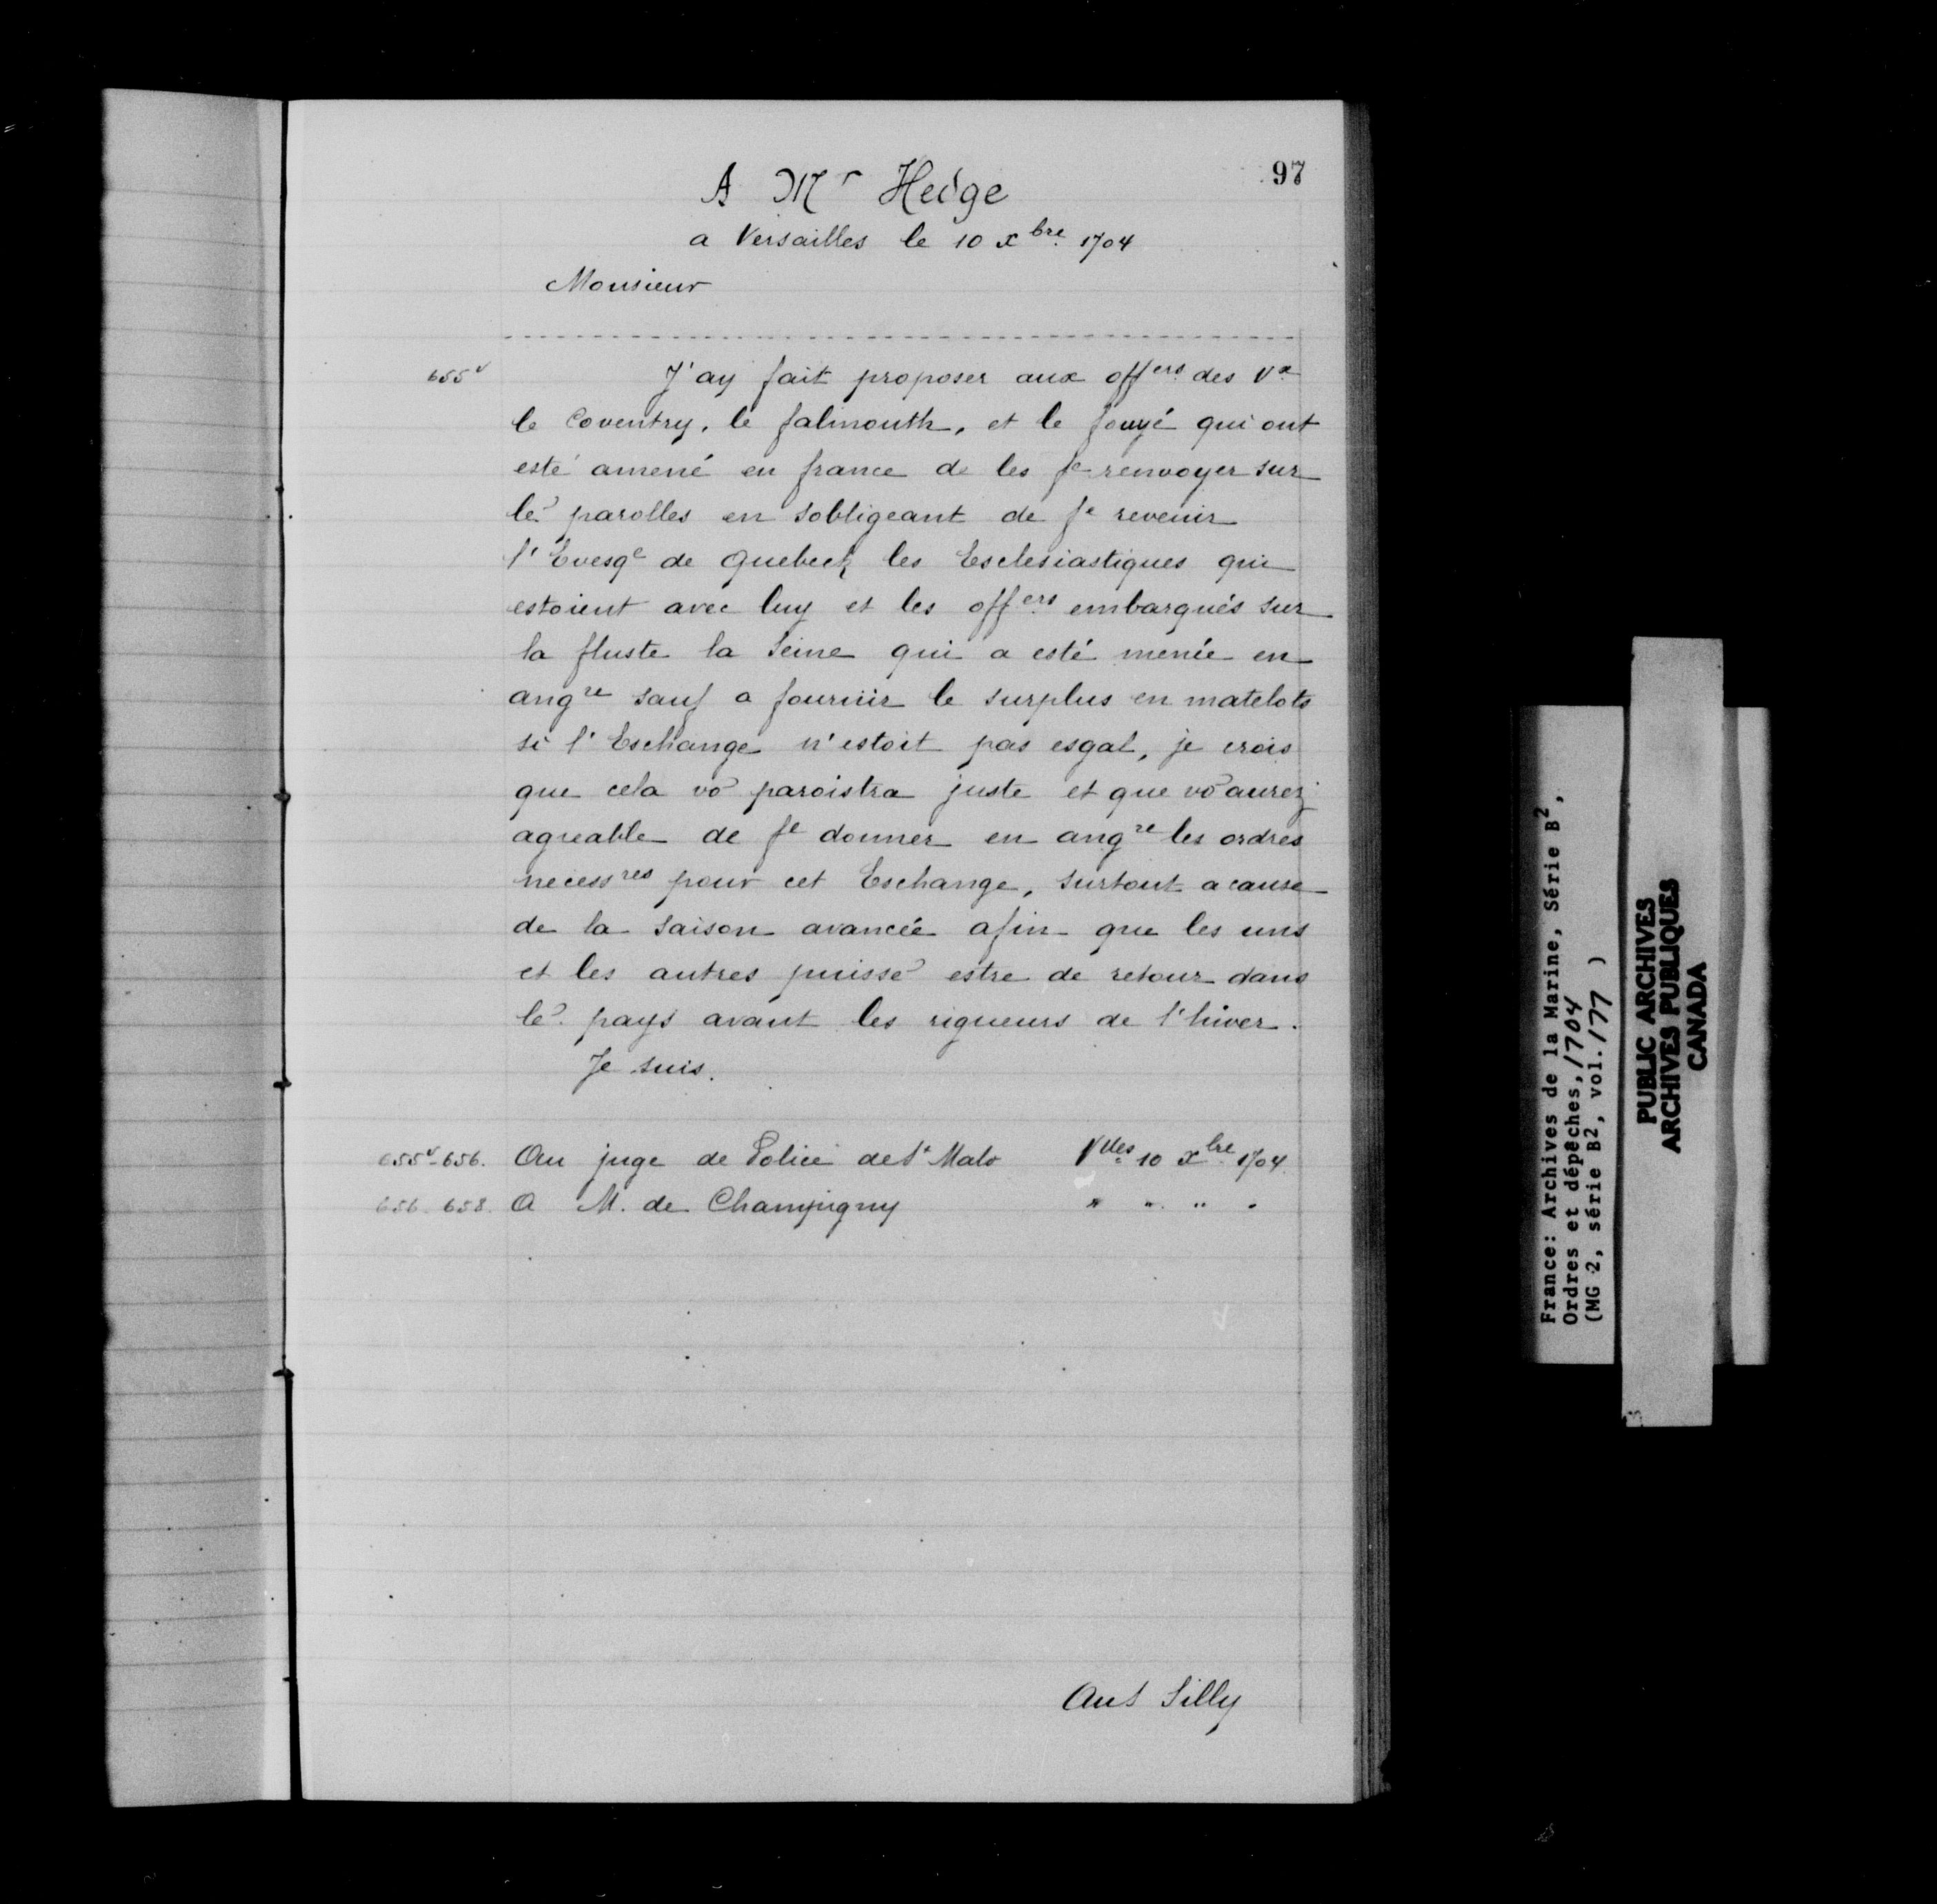 97
A Mr Hedge
a Versailles le 10 xbre 1704
Monsieur
655v J'ay fait proposer aux offers des Vx
le Coventry, le falmouth, et le fouyé qui ont
esté amené en france de les fe renvoyer sur
le~ parolles en sobligeant de fe revenir
l'Evesqe de Quebeck les Esclesiastiques qui
estoient avec luy et les offers embarqués sur
la fluste la Seine qui a esté menée en
angre sauf a fournir le surplus en matelots
si l'Eschange n'estoit pas esgal, je crois
que cela vo~ paroistra juste et que vo~ aurez
agreable de fe donner en angre les ordres
necessres pour cet Eschange, surtout a cause
de la saison avancée afin que les uns
et les autres puisse~ estre de retour dans
le~ pays avant les rigueurs de l'hiver.
Je suis.
655v-656. Au juge de Police de St Malo Vlles 10 xbre 1704.
656-658. A M. de Champigny " " " "
Aut Lilly
France: Archives de la Marine, Série B2,
Ordres et dépêches, 1704
(MG 2, série B2, vol. 177 )
PUBLIC ARCHIVES
ARCHIVES PUBLIQUES
CANADA